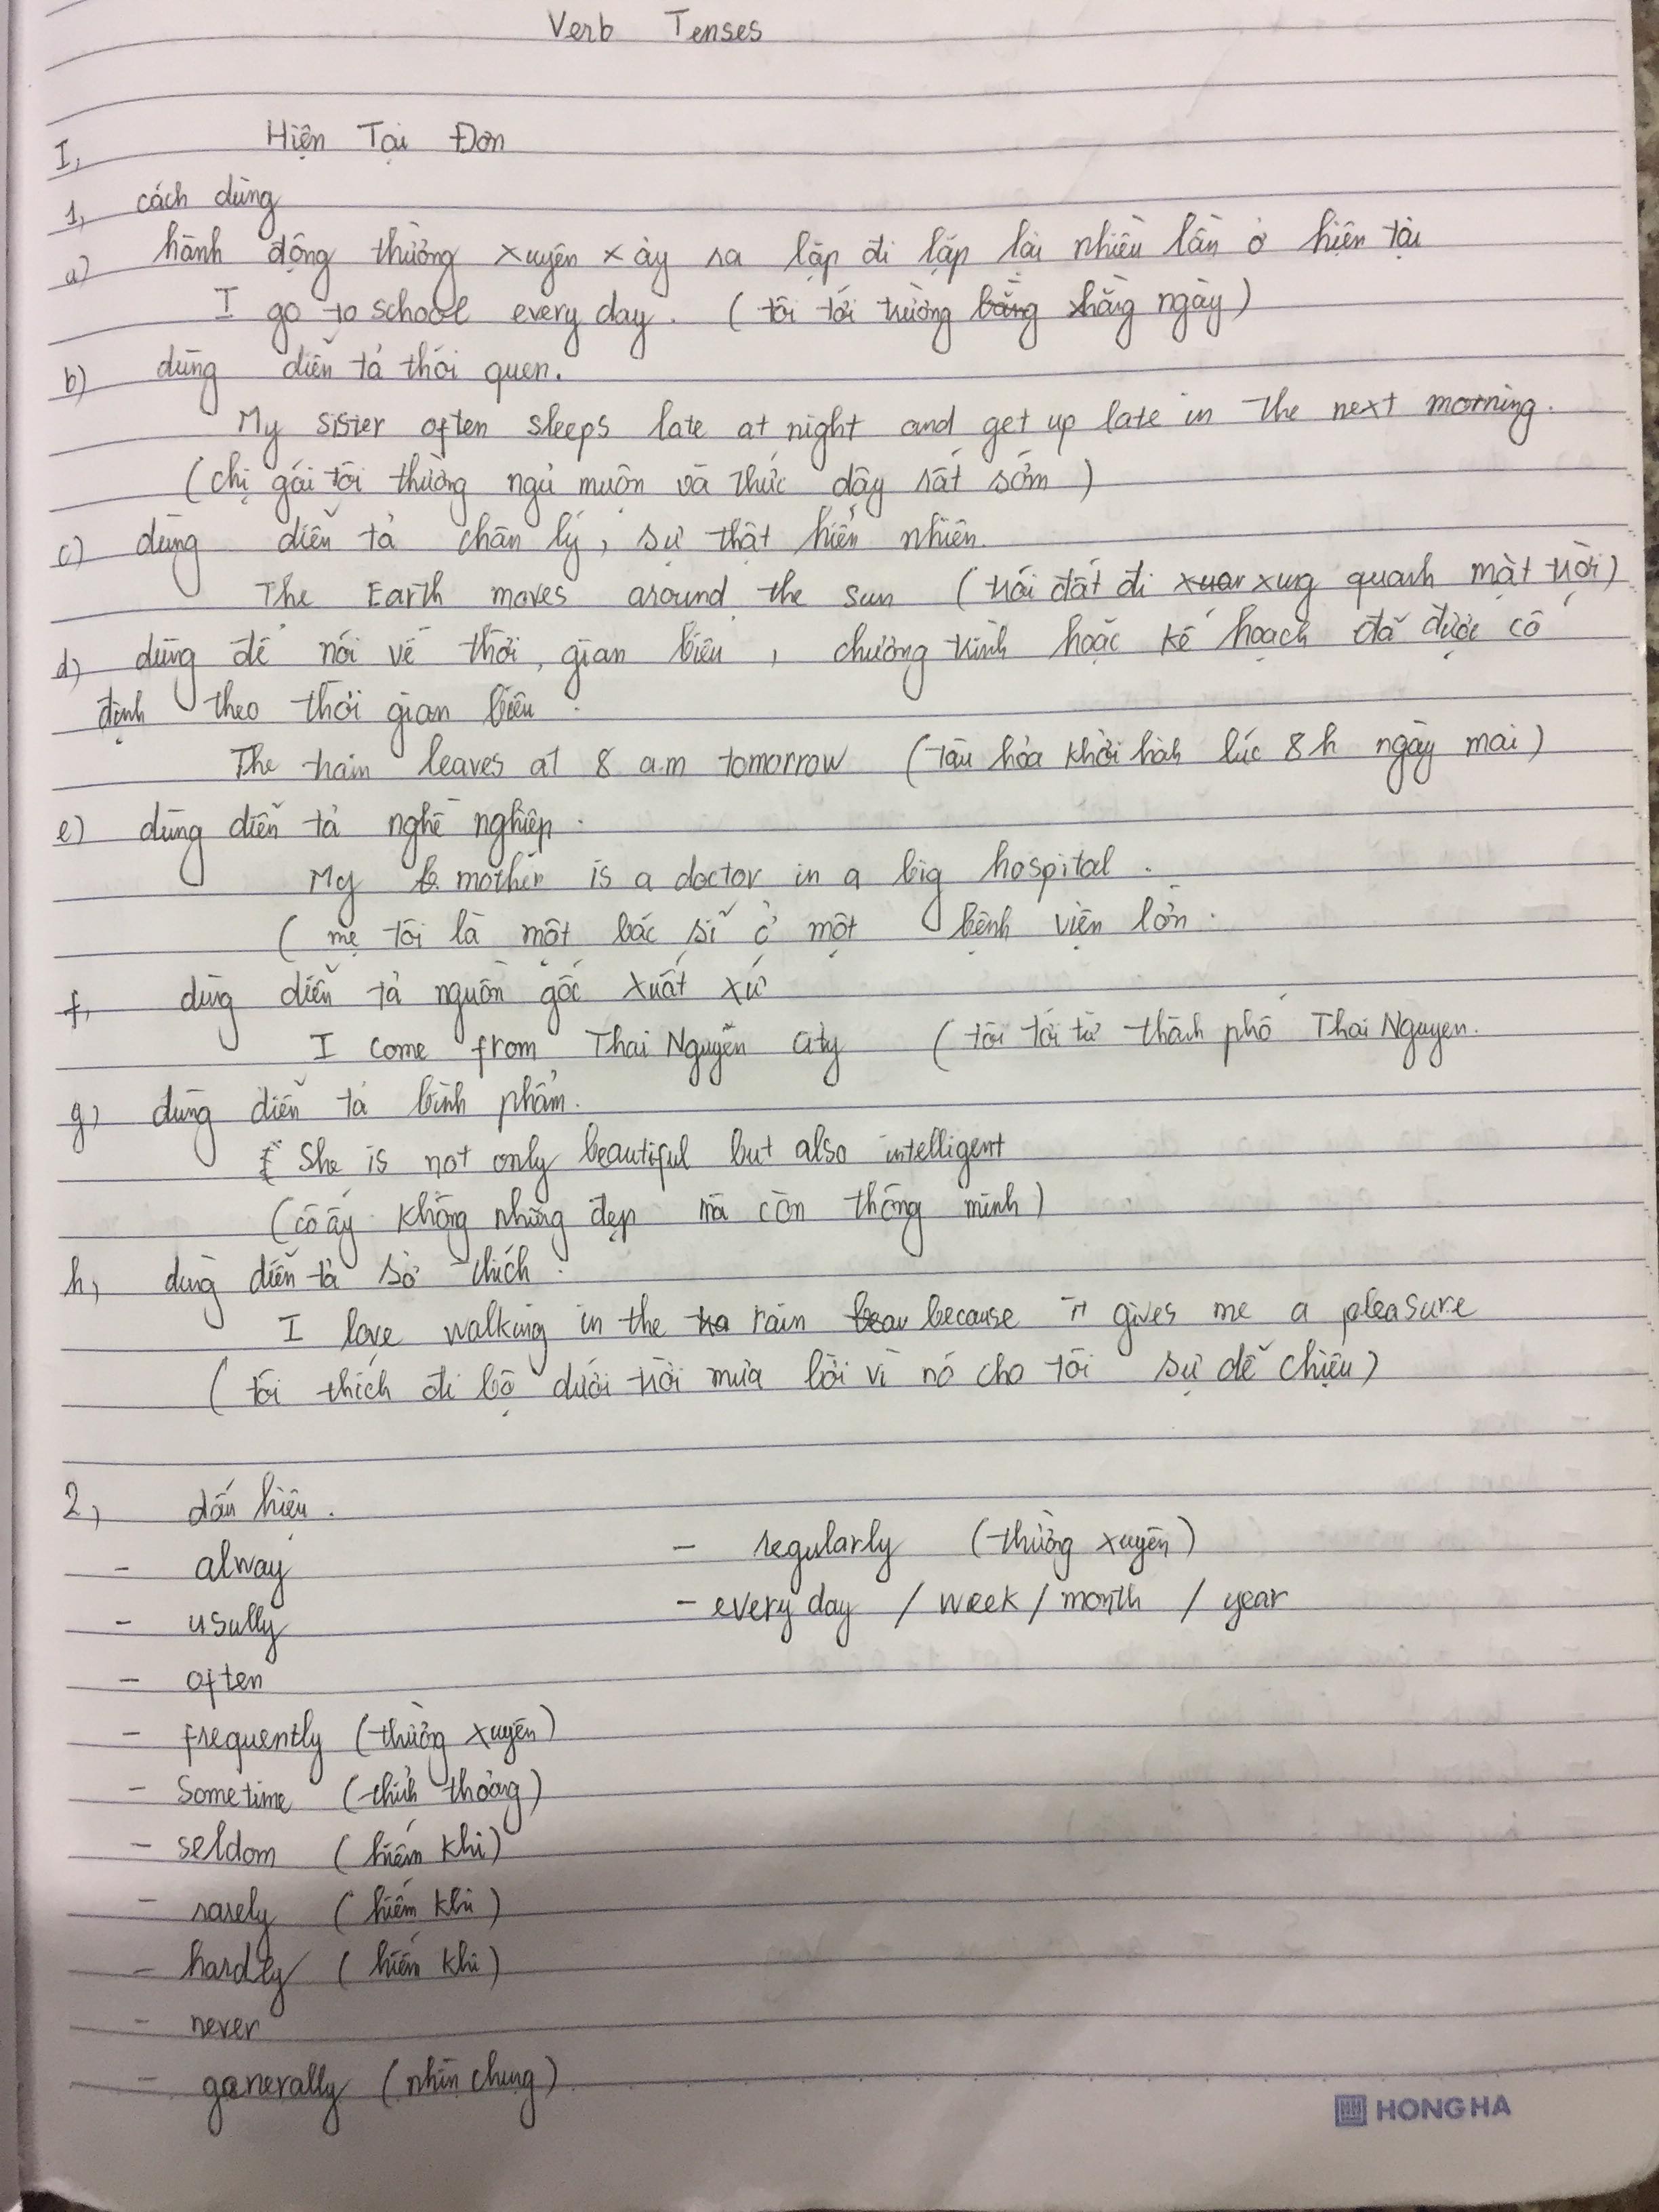 Verb Tenses
I, Hiện Tại Đơn
1, cách dùng
a) hành động thường xuyên xảy sa lặp đi lặp lại nhiều lần ở hiện tại
I go to school every day. (tôi tới trường hằng ngày)
b) dùng diễn tả thói quen.
My sister often sleeps late at night and get up late in the next morning.
(chị gái tôi thường ngủ muộn và thức dậy sất sớm)
c) dùng diễn tả chân lý, sự thật hiển nhiên.
The Earth moves around the sun (trái đất đi xung quanh mặt trời)
d) dùng để nói về thời gian biểu, chương trình hoặc kế hoạch đã được cố
định theo thời gian biểu.
The train leaves at 8 a.m tomorrow (tàu hỏa khởi hành lúc 8h ngày mai)
e) dùng diễn tả nghề nghiệp.
My mother is a doctor in a big hospital.
(mẹ tôi là một bác sĩ ở một bệnh viện lớn.
f, dùng diễn tả nguồn gốc xuất xứ
I come from Thai Nguyên City (tôi tới từ thành phố Thai Nguyen.
g) dùng diễn tả bình phẩm.
She is not only beautiful but also intelligent
(cô ấy không những đẹp mà còn thông minh)
h, dùng diễn tả sở thích.
I love walking in the rain because it gives me a pleasure
(tôi thích đi bộ dưới trời mưa bởi vì nó cho tôi sự dễ chiụ)
2, dấu hiệu.
- alway
- usully
- often
- frequently (thường xuyên)
- Sometime (thỉnh thoảng)
- seldom (hiếm khi)
- rarely (hiếm khi)
- hardly (hiếm khi)
- never
- generally (nhìn chung)
- regularly (thường xuyên)
- every day / week / month / year
HONG HA